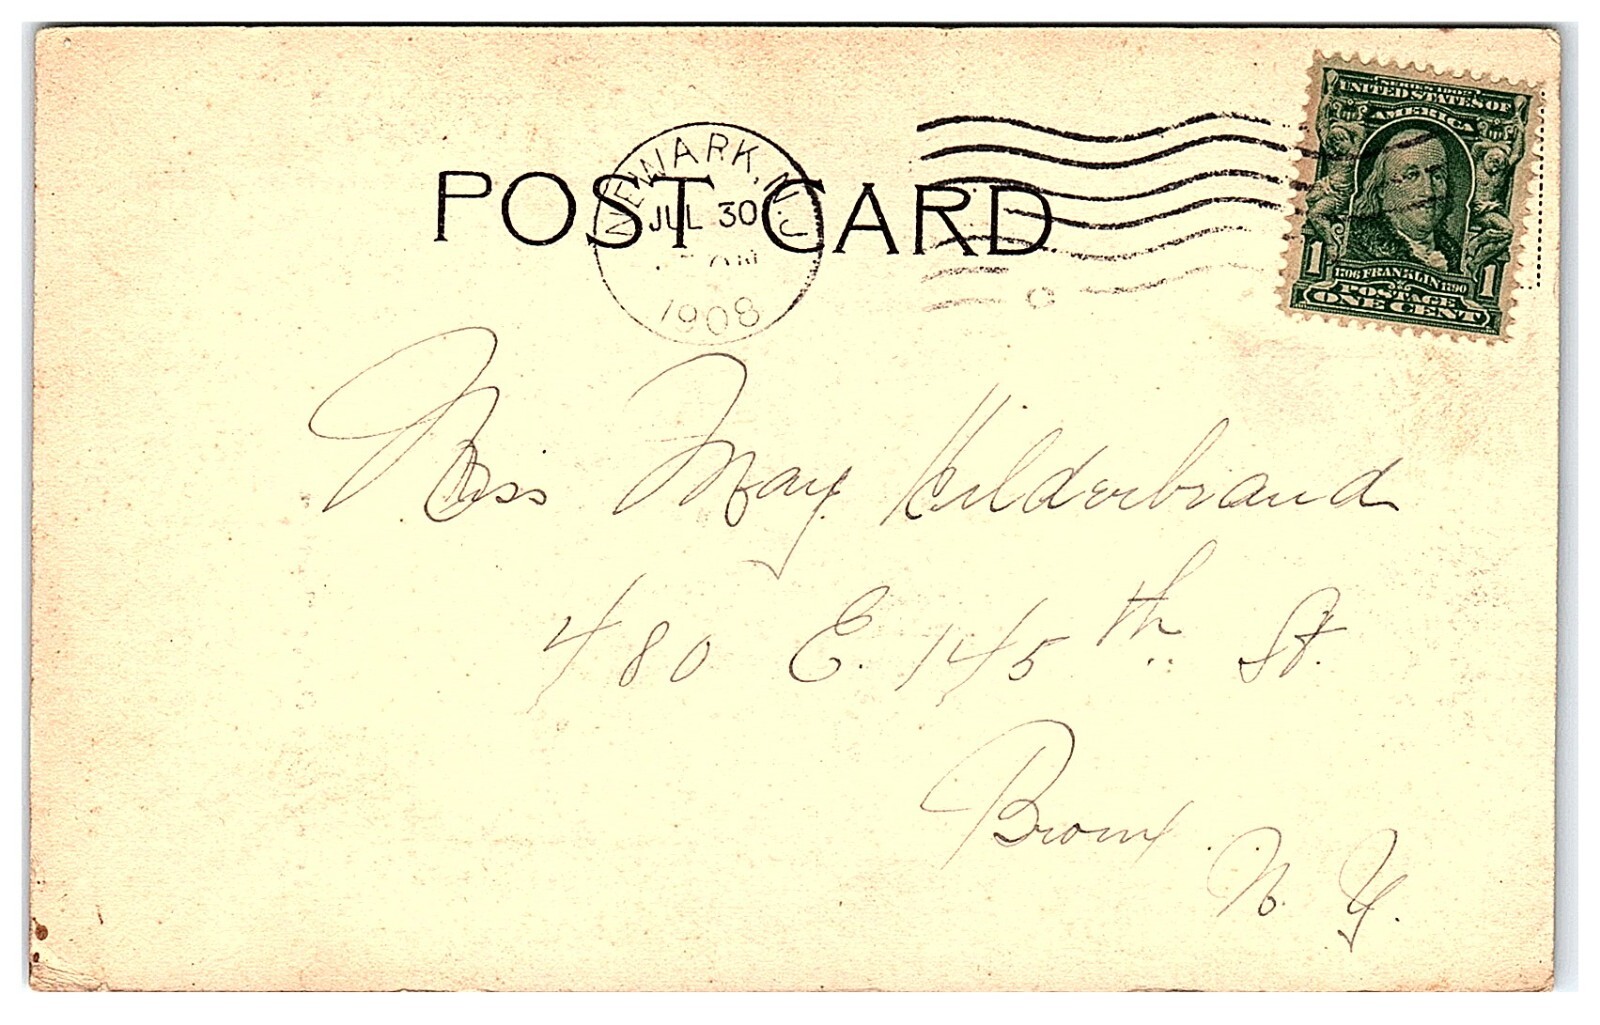 POST CARD
NEWARK, N.J.
JUL 30
1908
SERIES 1902
UNITED STATES OF
AMERICA
1 1706 FRANKLIN 1790 1
POSTAGE
ONE CENT
Miss May Hilderbrand
480 E. 145th St.
Bronx
N. Y.